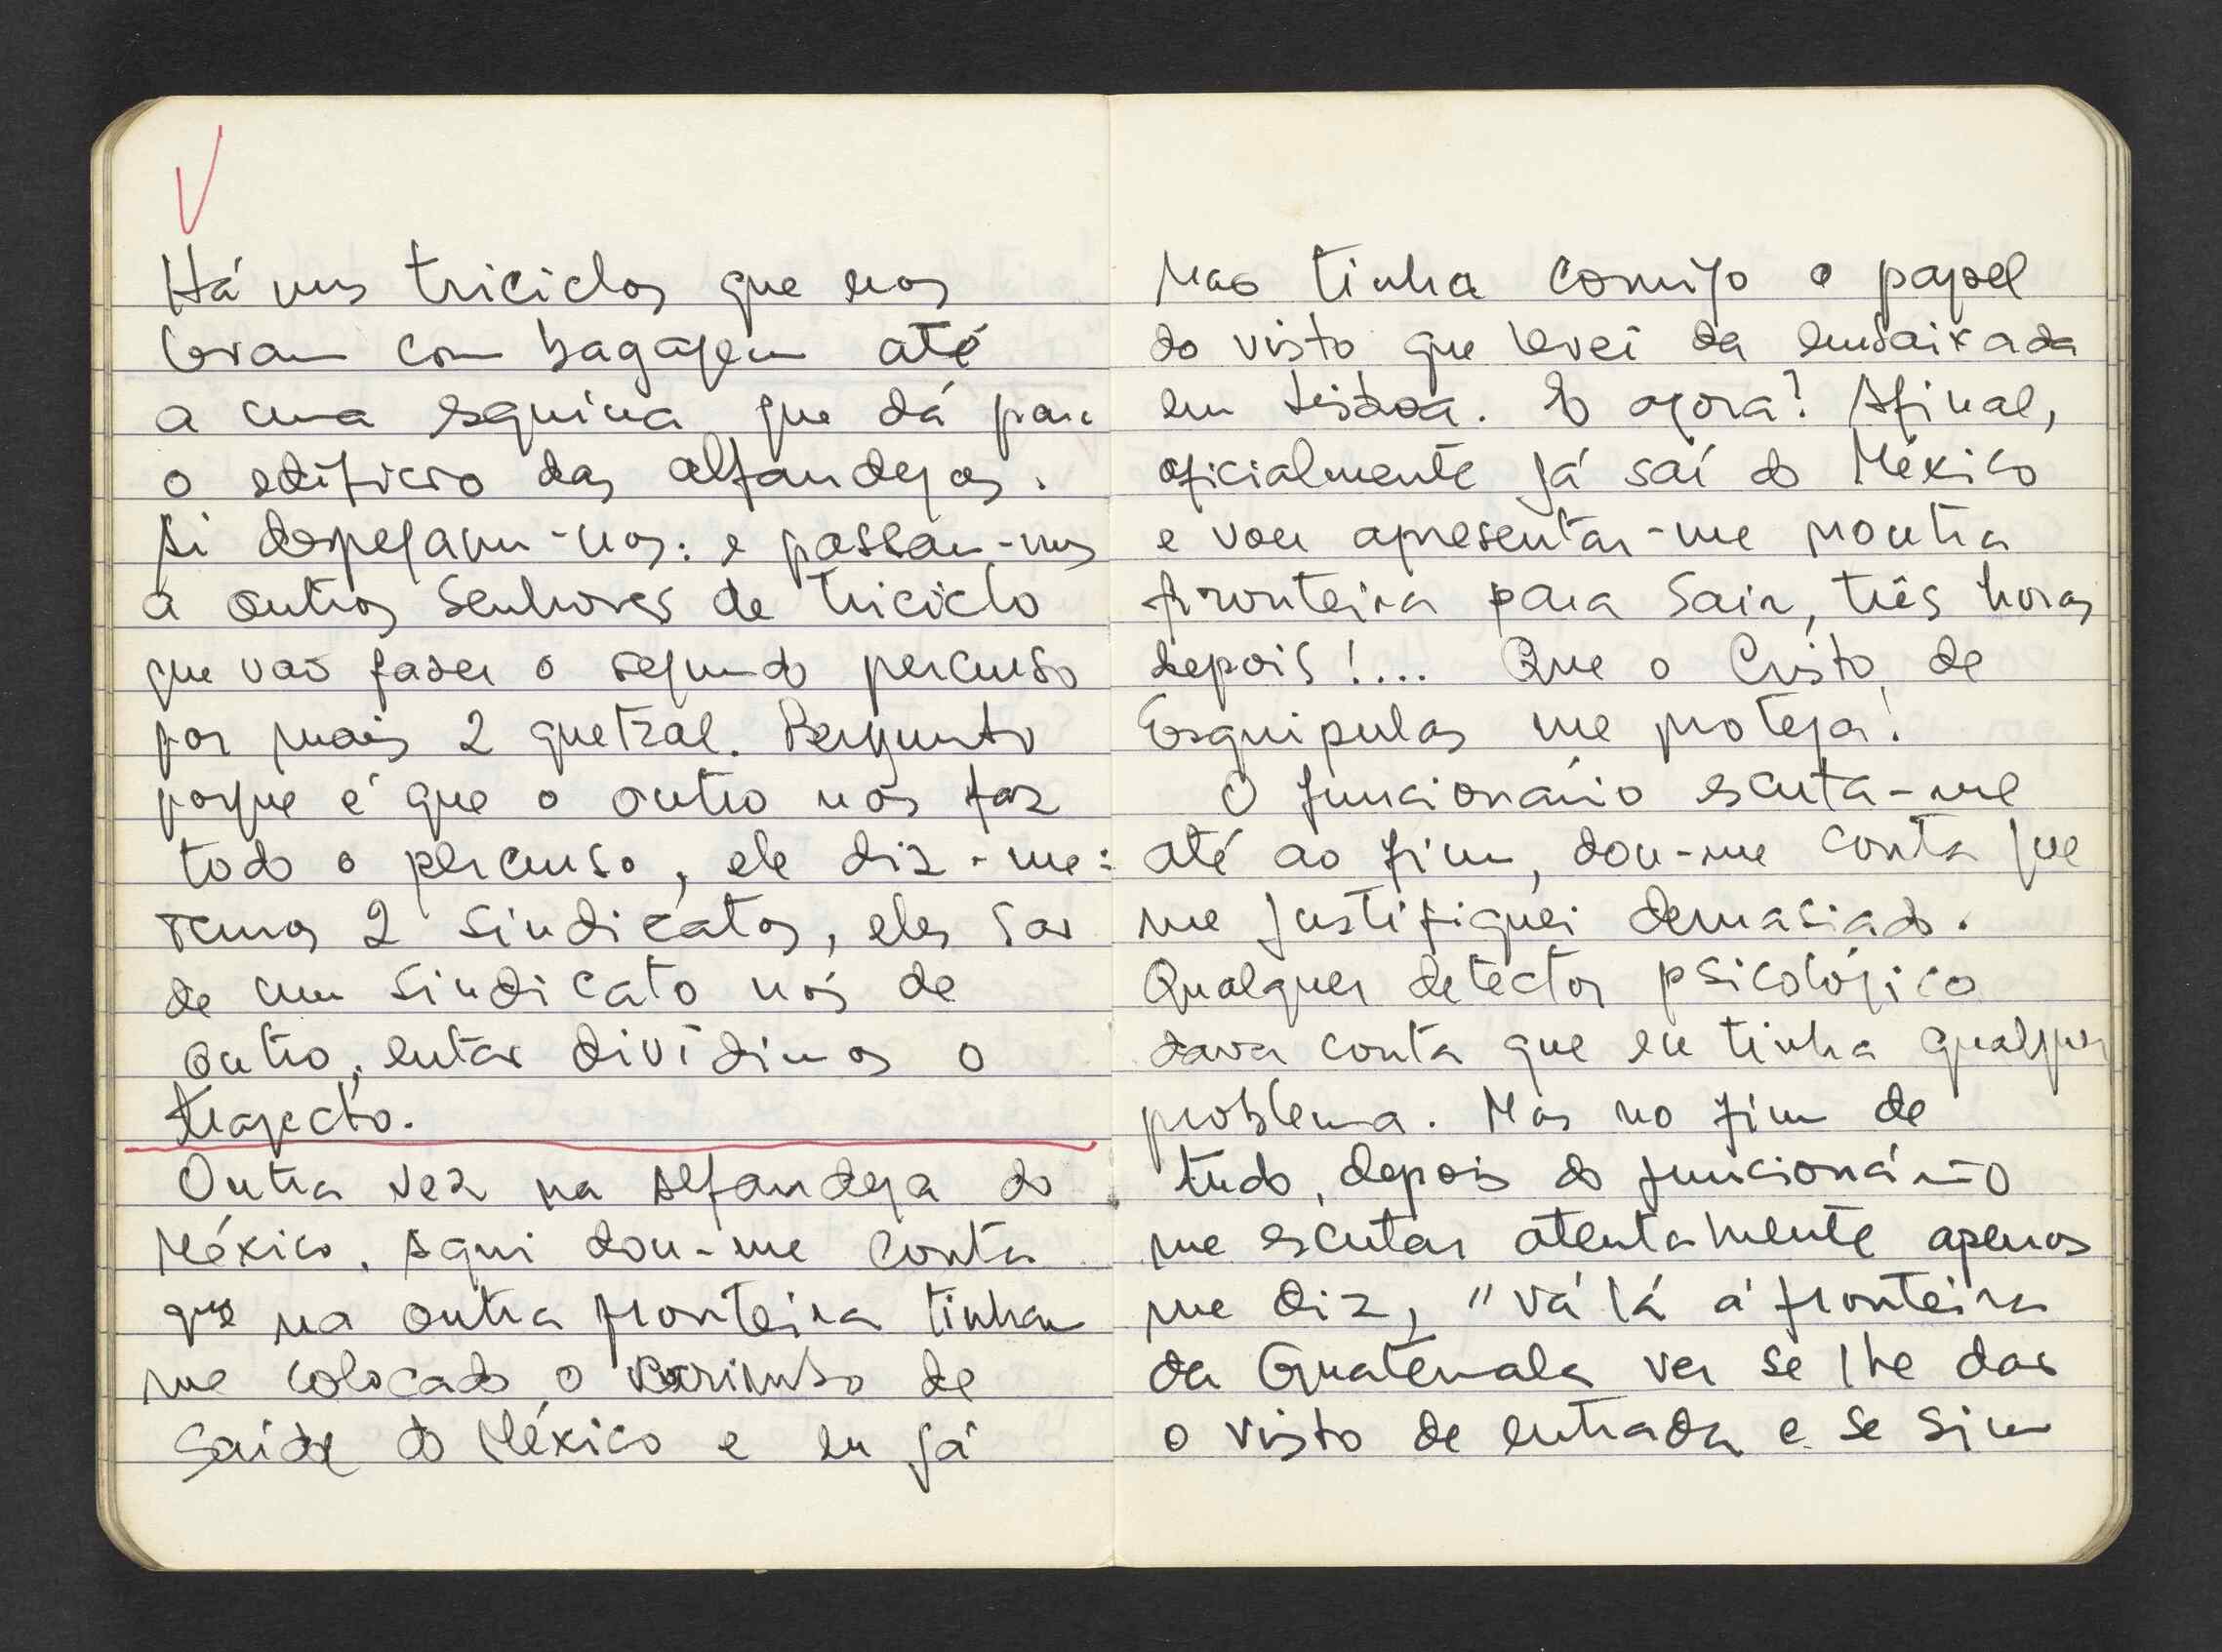 Há uns triciclos que nos
levam com bagagem até
a uma esquina que dá para
o edifício das alfandegas.
Aí despejam-nos: e passam-nos
a outros senhores de triciclo
que vão fazer o segundo percurso
por mais 2 quetzal. Pergunto
porque é que o outro nos faz
todo o percurso, ele diz-me:
temos 2 sindicatos, eles são
de um sindicato nós de
outro, então dividimos o
trajecto.
Outra vez na Alfandega do
México. Aqui dou-me conta
que na outra fronteira tinham
me colocado o carimbo de
saída do México e eu já
não tinha comigo o papel
do visto que levei da embaixada
em Lisboa. E agora? Afinal,
oficialmente já saí do México
e vou apresentar-me noutra
fronteira para sair, três horas
depois!... Que o Cristo de
Esquipulas me proteja!
O funcionário escuta-me
até ao fim, dou-me conta que
me justifiquei demasiado.
Qualquer detector psicológico
dava conta que eu tinha qualquer
problema. Mas no fim de
tudo, depois do funcionário
me escutar atentamente apenas
me diz, "vá lá á fronteira
da Guatemala ver se lhe dão
o visto de entrada e se sim